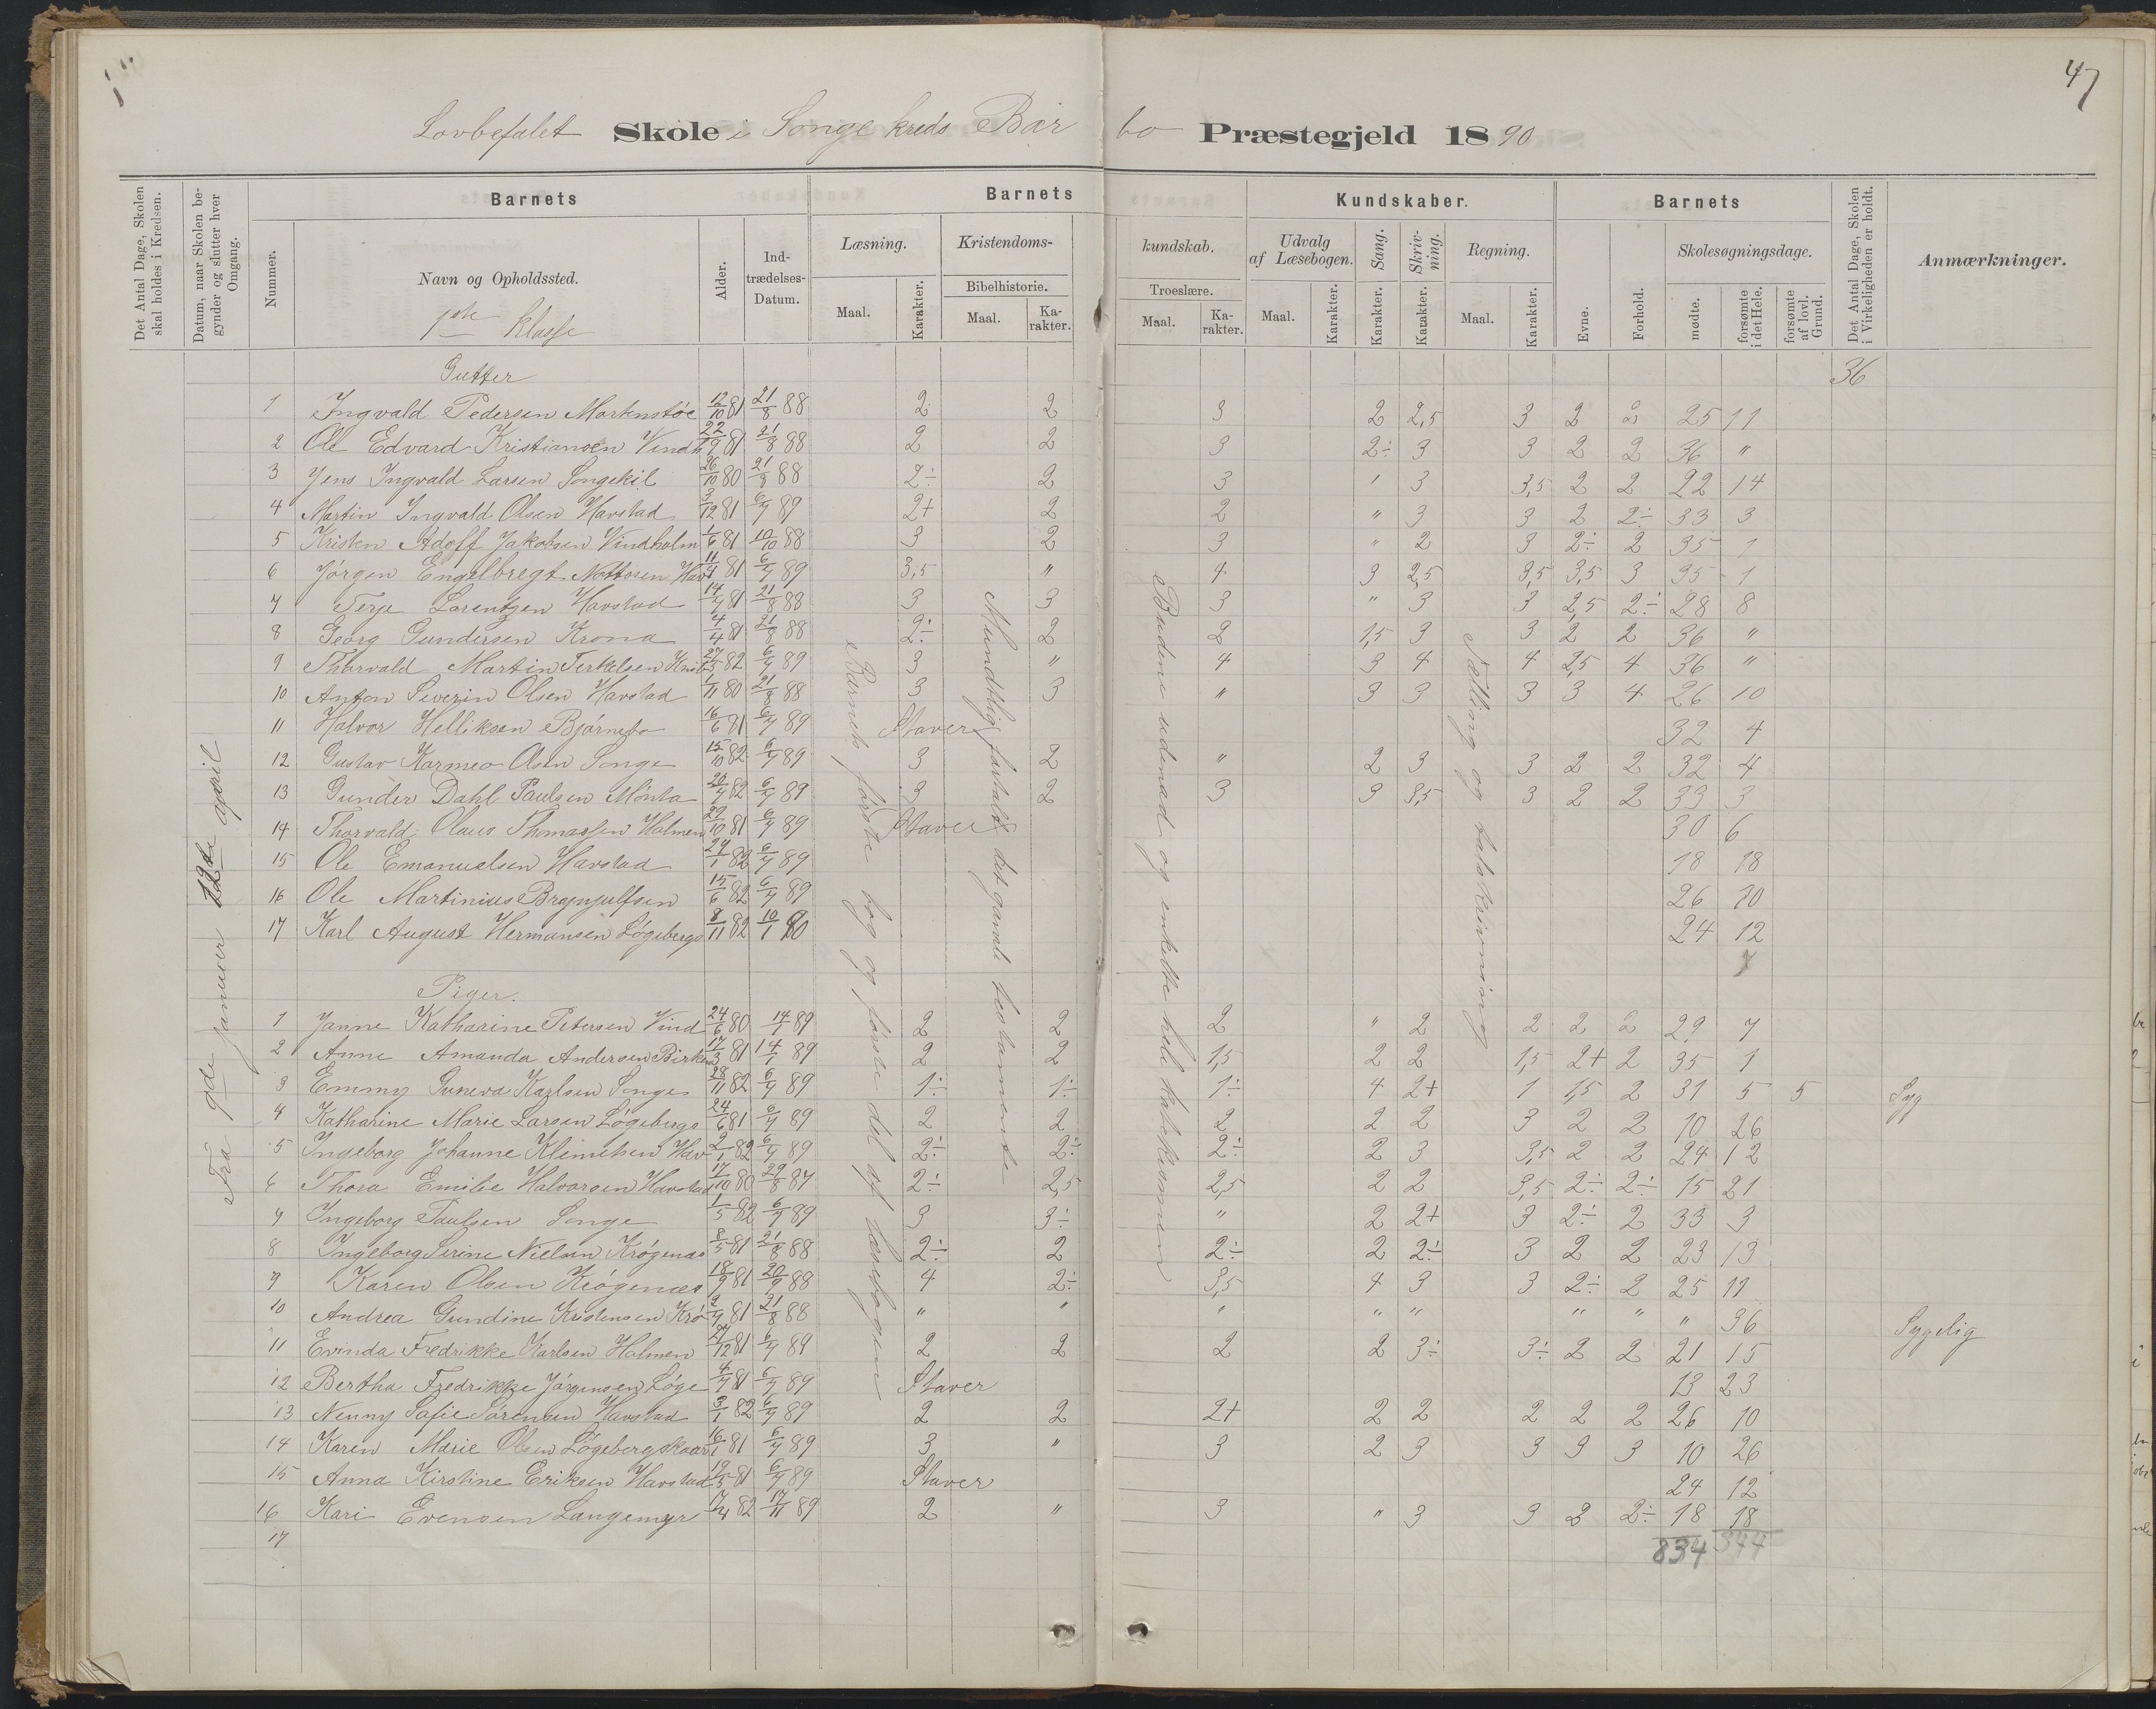 47
Lovbefalet Skole i Songe kreds Bar bo Præstegjeld 1890
Det Antal Dage, Skolen skal holdes i Kredsen.
Datum, naar Skolen begynder og slutter hver Omgang.
Barnets
Nummer.
Navn og Opholdssted.
1ste Klasse
Alder.
Indtrædelses-Datum.
Barnets
Læsning.
Maal.
Karakter.
Kristendoms-
Bibelhistorie.
Maal.
Karakter.
kundskab.
Troeslære.
Maal.
Karakter.
Kundskaber.
Udvalg af Læsebogen.
Maal.
Karakter.
Sang.
Karakter.
Skrivning.
Karakter.
Regning.
Maal.
Karakter.
Barnets
Evne.
Forhold.
Skolesøgningsdage.
mødte.
forsømte i det Hele.
forsømte af lovl. Grund.
Det Antal Dage, Skolen i Virkeligheden er holdt.
Anmærkninger.
Fra 9de januar 12te april
Barnets første bog og første del af læsebogen
Mundtlig fortalt det gamle testamente
Budene udenad og enkelte hele katekismen
Tælling og talskrivning
Gutter 36
1 Ingvald Pedersen Markustøe 12/10 81 21/8 88 2 2 3 2 2,5 3 2 2 25 11
2 Ole Edvard Kristiansen Vindh 22/9 81 21/8 88 2 2 3 2÷ 3 3 2 2 36 "
3 Jens Ingvald Larsen Songekil 26/10 80 21/8 88 2÷ 2 3 " 3 3,5 2 2 22 14
4 Martin Ingvald Olsen Havstad 3/12 81 6/4 89 2+ 2 2 " 3 3 2 2÷ 33 3
5 Kristen Adolf Jakobsen Vindholm 1/6 81 10/10 88 3 2 3 " 2 3 2÷ 2 35 1
6 Jørgen Engelbregt Nottosen Hav 11/9 81 6/4 89 3,5 " 4 3 2,5 3,5 3,5 3 35 1
7 Terje Lorentzen Havstad 14/4 81 21/8 88 3 3 3 " 3 3 2,5 2÷ 28 8
8 Georg Gundersen Krona 4/4 81 21/8 88 2÷ 2 2 1,5 3 3 2 2 36 "
9 Thorvald Martin Terkelsen 27/5 82 6/4 89 3 " 4 3 4 4 2,5 4 36 "
10 Anton Severin Olsen Havstad 1/11 80 21/8 88 3 3 " 3 3 3 3 4 26 10
11 Halvor Helliksen Bjørnebo 16/6 81 6/4 89 Staver 32 4
12 Gustav Karmeo Olsen Songe 15/10 82 6/4 89 3 2 " 2 3 3 2 2 32 4
13 Gunder Dahl Paulsen Mønta 20/4 82 6/4 89 3 2 3 3 3,5 3 2 2 33 3
14 Thorvald Olaus Thomassen Holmen 29/10 81 6/4 89 Staver 30 6
15 Ole Emanuelsen Havstad 29/1 82 6/4 89 18 18
16 Ole Martinius Brynjulfsen 15/6 82 6/4 89 26 10
17 Karl August Hermansen Løgebergs 8/11 82 10/1 90 24 12
Piger.
1 Janne Katharine Petersen Vind 24/6 80 14/1 89 2 2 2 " 2 2 2 2 29 7
2 Anne Amanda Andersen Birke 17/3 81 14/1 89 2 2 1,5 2 2 1,5 2+ 2 35 1
3 Emmy Suneva Karlsen Songe 28/11 82 6/4 89 1÷ 1÷ 1÷ 4 2+ 1 1,5 2 31 5 5 Syg
4 Katharine Marie Larsen Løgebergs 24/6 81 6/4 89 2 2 2 2 2 3 2 2 10 26
5 Ingeborg Johanne Klemetsen Hav 2/1 82 6/4 89 2÷ 2÷ 2÷ 2 3 3,5 2 2 24 12
6 Thora Emilie Halvorsen Havstad 17/10 80 29/8 87 2÷ 2,5 2,5 2 2 3,5 2÷ 2÷ 15 21
7 Ingeborg Paulsen Songe 1/5 82 6/4 89 3 3÷ " 2 2+ 3 2÷ 2 33 3
8 Ingeborg Serine Nielsen Krøgenæs 8/5 81 21/8 88 2÷ 2 2÷ 2 2÷ 3 2 2 23 13
9 Karen Olsen Krøgenæs 18/9 81 20/9 88 4 2÷ 3,5 4 3 3 2÷ 2 25 11
10 Andrea Gundine Kristensen Krø 2/4 81 21/8 88 " " " " " " " " 36 Sygelig
11 Evinda Fredrikke Karlsen Holmen 27/12 81 6/4 89 2 2 2 2 3÷ 3÷ 2 2 21 15
12 Bertha Fredrikke Jørgensen Løge 4/4 81 6/4 89 Staver 13 23
13 Nenny Sofie Sørensen Havstad 3/1 82 6/4 89 2 2 2+ 2 2 2 2 2 26 10
14 Karen Marie Olsen Løgebergskaar 16/1 81 6/4 89 3 " 3 2 3 3 3 3 10 26
15 Anna Kirstine Eriksen Havstad 19/5 81 6/4 89 Staver 24 12
16 Kari Evensen Langemyr 7/4 82 17/11 89 2 " 3 " 3 3 2 2÷ 18 18
17
834 344